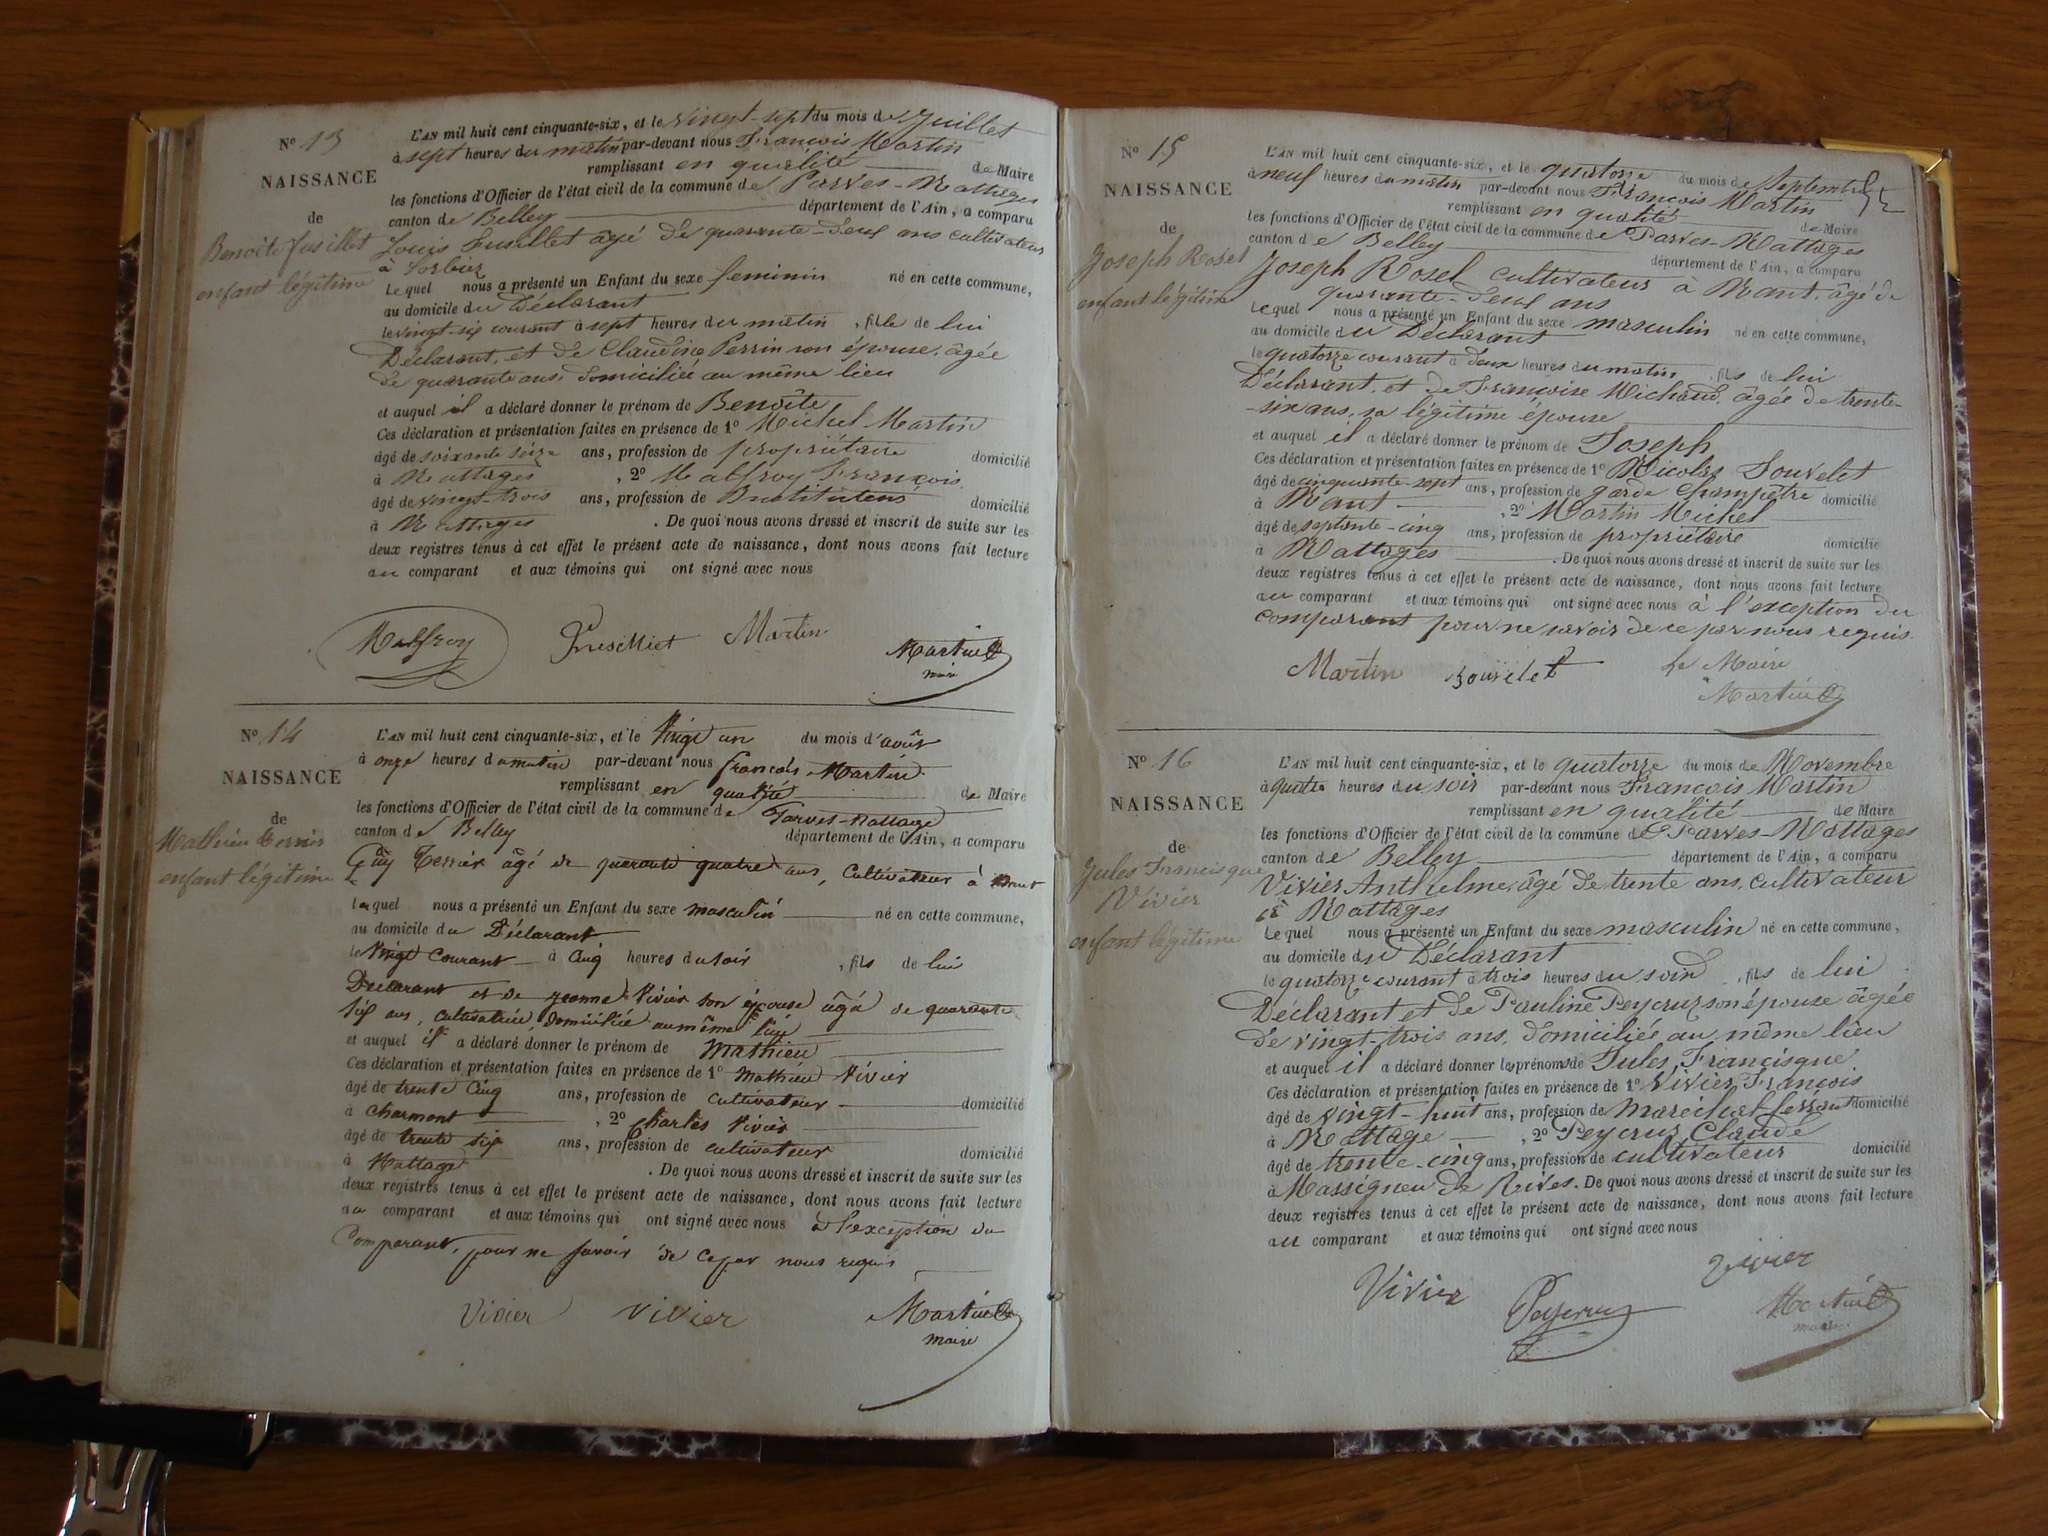 N° 13
NAISSANCE
de
Benoîte fusillet
enfant légitime
L'AN mil huit cent cinquante-six, et le vingt-sept du mois de Juillet
à sept heures du matin par-devant nous François Martin
remplissant en qualité de Maire
les fonctions d'Officier de l'état civil de la commune de Parves-Nattages
canton de Belley département de l'Ain, a comparu
Louis fusillet âgé de quarante-deux ans cultivateur
à Sorbier
Lequel nous a présenté un Enfant du sexe feminin né en cette commune,
au domicile du Déclarant
le vingt-six courant à sept heures du matin, fille de lui
Déclarant, et de Claudine Perrin son épouse, âgée
de quarante ans, domiciliée au même lieu
et auquel il a déclaré donner le prénom de Benoîte
Ces déclaration et présentation faites en présence de 1° Michel Martin
âgé de soixante seize ans, profession de propriétaire domicilié
à Nattages, 2° Malfroy François
âgé de vingt-trois ans, profession de Instituteur domicilié
à Nattages. De quoi nous avons dressé et inscrit de suite sur les
deux registres tenus à cet effet le présent acte de naissance, dont nous avons fait lecture
au comparant et aux témoins qui ont signé avec nous
Malfroy Martin Martin
maire
N° 14
NAISSANCE
de
Mathieu Terrier
enfant légitime
L'AN mil huit cent cinquante-six, et le Vingt un du mois d'août
à onze heures du matin par-devant nous françois Martin
remplissant en qualité de Maire
les fonctions d'Officier de l'état civil de la commune de Parves-Nattage
canton de Belley département de l'Ain, a comparu
Guy Terrier âgé de quarante quatre ans, cultivateur à Nant
Lequel nous a présenté un Enfant du sexe masculin né en cette commune,
au domicile du Déclarant
le Vingt courant à cinq heures du soir, fils de lui
Déclarant et de jeanne Vivier son épouse âgé de quarante
six ans, cultivatrice, domiciliée au même lieu
et auquel il a déclaré donner le prénom de Mathieu
Ces déclaration et présentation faites en présence de 1° Mathieu Vivier
âgé de trente cinq ans, profession de cultivateur domicilié
à charmont, 2° charles Vivier
âgé de trente six ans, profession de cultivateur domicilié
à Nattage. De quoi nous avons dressé et inscrit de suite sur les
deux registres tenus à cet effet le présent acte de naissance, dont nous avons fait lecture
au comparant et aux témoins qui ont signé avec nous à l'exception du
Comparant, pour ne savoir de ce par nous requis
Vivier Vivier Martin
maire
N° 15
NAISSANCE
de
Joseph Rosel
enfant légitime
L'AN mil huit cent cinquante-six, et le quatorze du mois de Septembre
à neuf heures du matin par-devant nous François Martin
remplissant en qualité de Maire
les fonctions d'Officier de l'état civil de la commune de Parves-Nattages
canton de Belley département de l'Ain, a comparu
Joseph Rosel cultivateur à Nant, âgé de
quarante-deux ans
Lequel nous a présenté un Enfant du sexe masculin né en cette commune,
au domicile du Déclarant
le quatorze courant à deux heures du matin, fils de lui
Déclarant, et de Françoise Michaud, âgée de trente-
-six ans, sa légitime épouse
et auquel il a déclaré donner le prénom de Joseph
Ces déclaration et présentation faites en présence de 1° Nicolas Bouvelet
âgé de cinquante-sept ans, profession de garde champêtre domicilié
à Nant, 2° Martin Michel
âgé de septante-cinq ans, profession de propriétaire domicilié
à Nattages. De quoi nous avons dressé et inscrit de suite sur les
deux registres tenus à cet effet le présent acte de naissance, dont nous avons fait lecture
au comparant et aux témoins qui ont signé avec nous à l'exception du
comparant pour ne savoir de ce par nous requis.
Martin Bouvelet Le Maire
Martin
N° 16
NAISSANCE
de
Jules Francisque
Vivier
enfant légitime
L'AN mil huit cent cinquante-six, et le quatorze du mois de Novembre
à quatre heures du soir par-devant nous François Martin
remplissant en qualité de Maire
les fonctions d'Officier de l'état civil de la commune de Parves-Nattages
canton de Belley département de l'Ain, a comparu
Vivier Anthelme, âgé de trente ans, cultivateur
à Nattages
Lequel nous a présenté un Enfant du sexe masculin né en cette commune,
au domicile du Déclarant
le quatorze courant à trois heures du soir, fils de lui
Déclarant et de Pauline Peycruz son épouse âgée
de vingt-trois ans, domiciliée au même lieu
et auquel il a déclaré donner les prénoms de Jules Francisque
Ces déclaration et présentation faites en présence de 1° Vivier François
âgé de vingt-huit ans, profession de maréchal-ferrant domicilié
à Nattage, 2° Peycruz Claude
âgé de trente-cinq ans, profession de cultivateur domicilié
à Massigneu de Rives. De quoi nous avons dressé et inscrit de suite sur les
deux registres tenus à cet effet le présent acte de naissance, dont nous avons fait lecture
au comparant et aux témoins qui ont signé avec nous
Vivier
Vivier Peycruz Martin
maire